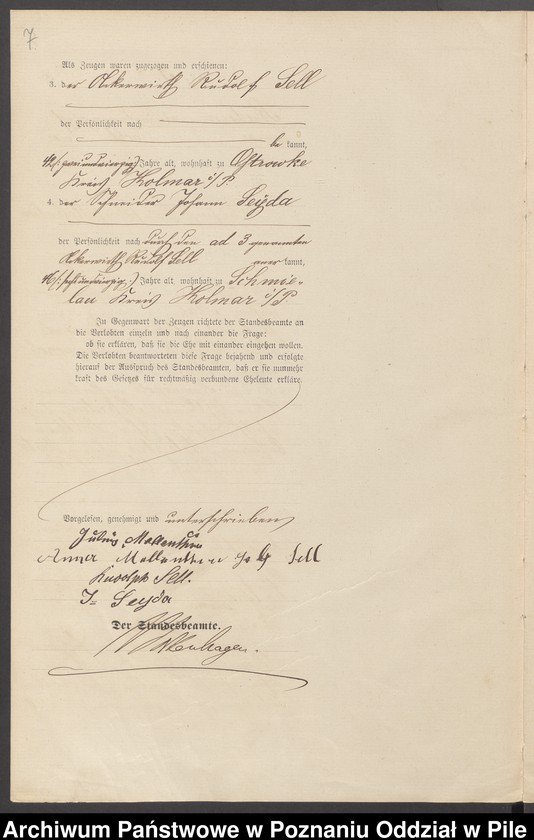 7
Als Zeugen waren zugezogen und erschienen:
3. der Ackerwirth Rudolf Sell
der Persönlichkeit nach
be kannt,
42 (: zweiundvierzig :) Jahre alt, wohnhaft zu Ostrowke
Kreis Kolmar i/P.
4. der Schneider Johann Seÿda
der Persönlichkeit nach durch den ad 3 genannten
Ackerwirth Rudolf Sell aner kannt,
46 (: sechsundvierzig :) Jahre alt, wohnhaft zu Schmie-
lau Kreis Kolmar i/P
In Gegenwart der Zeugen richtete der Standesbeamte an
die Verlobten einzeln und nach einander die Frage:
ob sie erklären, daß sie die Ehe mit einander eingehen wollen.
Die Verlobten beantworteten diese Frage bejahend und erfolgte
hierauf der Ausspruch des Standesbeamten, daß er sie nunmehr
kraft des Gesetzes für rechtmäßig verbundene Eheleute erkläre.
Vorgelesen, genehmigt und unterschrieben
Julius Mallenthin
Anna Mallenthin geb Sell
Rudolph Sell.
J= Seyda
Der Standesbeamte.
Archiwum Państwowe w Poznaniu Oddział w Pile